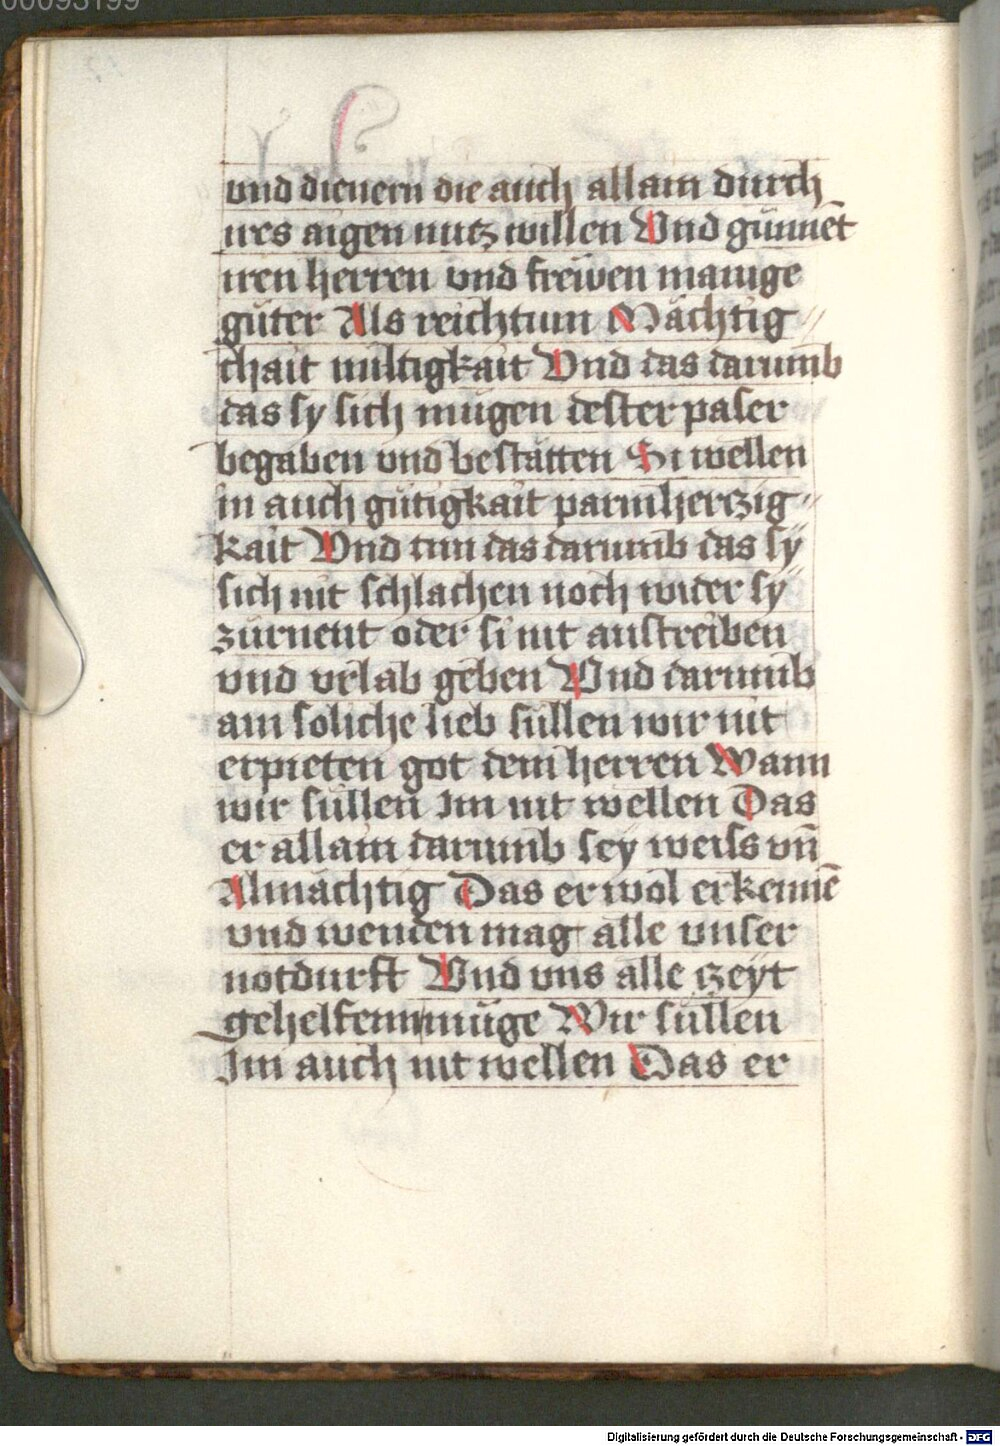 00093199
vnd dienern die auch allain durch
ires aigen nutz willen Vnd günnet̄
iren herren vnd frewen manige
güter Als reichtum Mächtig//
chait miltigkait Vnd das darumb
das sy sich mügen dester paser
begaben vnd bestätten Si wellen
in auch gütigkait parmherczig//
kait Vnd tun das darumb das sÿ
sich nit schlachen noch wider sÿ
zürnent oder si nit austreiben
vnd vrlab geben Vnd darumb
ain soliche lieb süllen wir nit
erpieten got dem herren Wann
wir süllen Im nit wellen Das
er allain darumb sey weiss vn̄
Almächtig Das er wol erkenne̅
vnd wenden mag alle vnser
notdurft Vnd vns alle czeyt
gehelfenn müge Wir süllen
Im auch nit wellen Das er
Digitalisierung gefördert durch die Deutsche Forschungsgemeinschaft - DFG